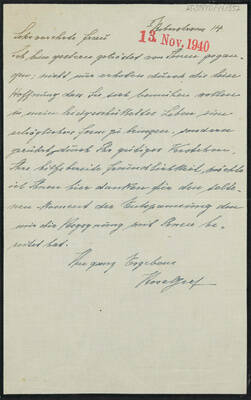 13. Nov. 1940
Sehr verehrte Frau
Ich bin gestern getröstet von Ihnen gegan-
gen; nicht nur erhoben durch die liebe
Hoffnung dass Sie sich bemühen wollen
in mein Leben eine
erträglichere Form zu bringen, sondern
gerührt durch Ihr gütiges Verstehen.
Ihre hilfsbereite Freundlichkeit, möchte
ich Ihnen hier danken für den selte-
nen Moment der Entspannung den
mir die Begegnung mit Ihnen be-
reitet hat.
Ihr ganz Ergebener